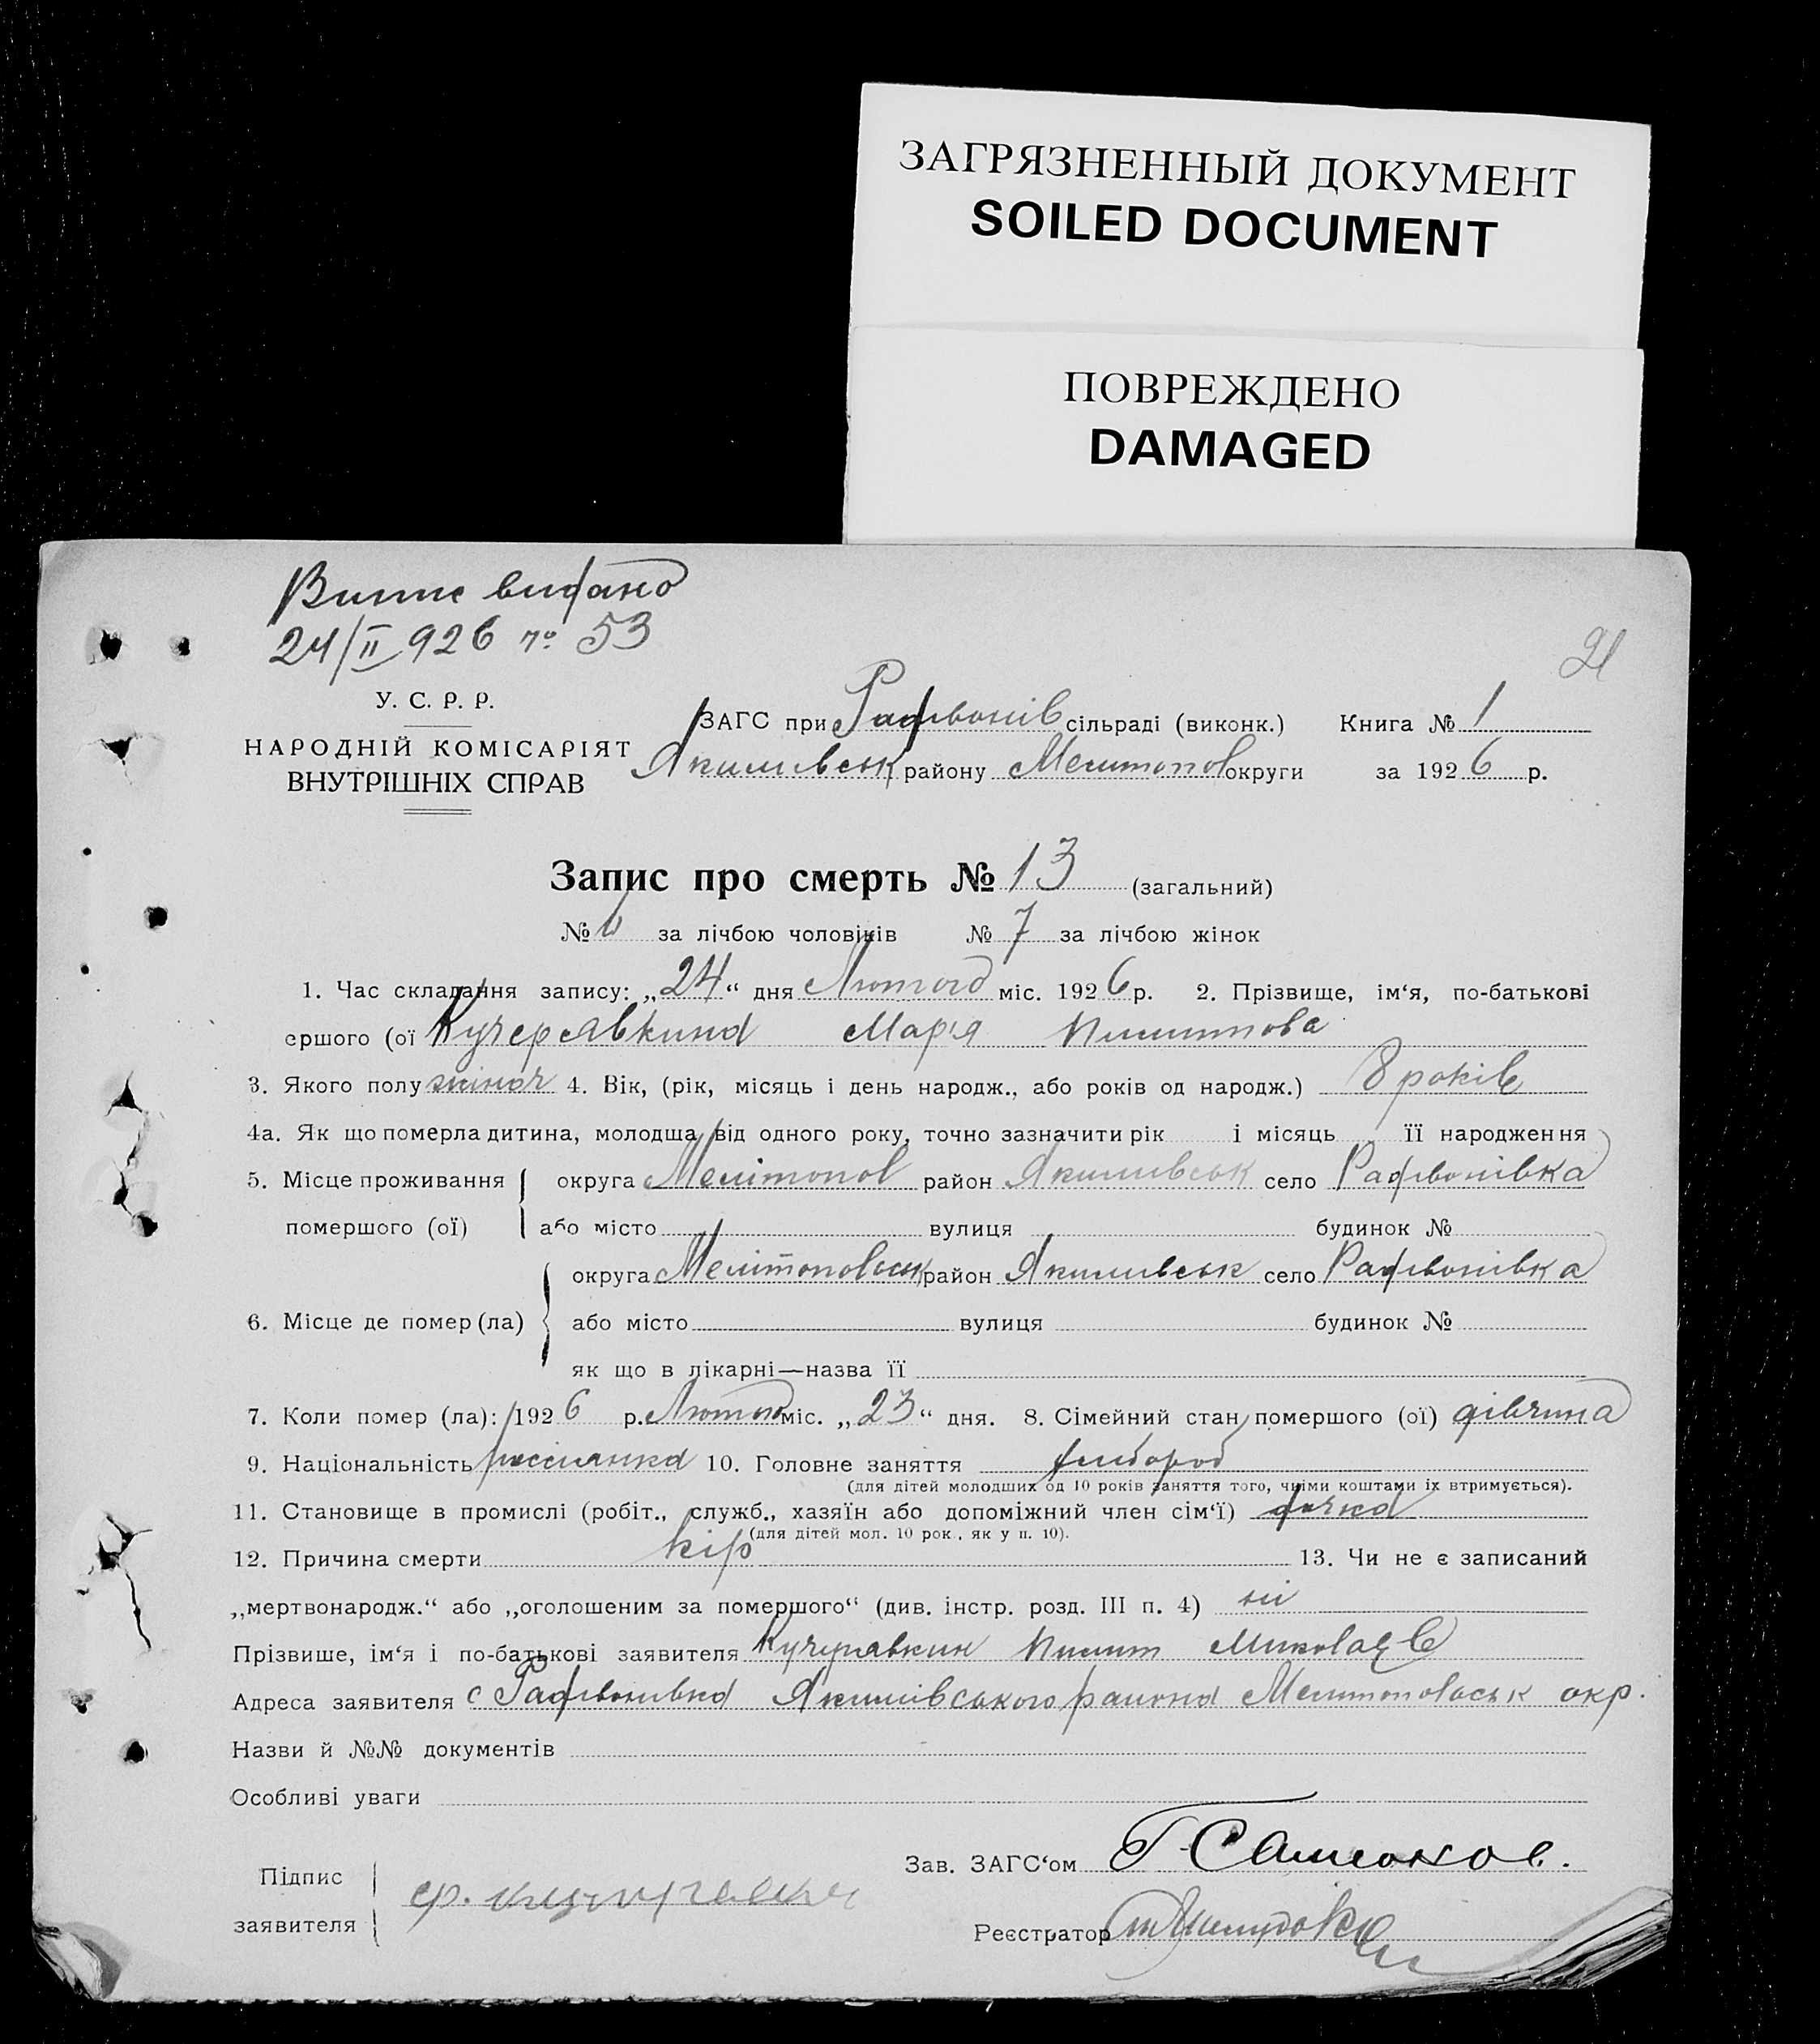 ЗАГРЯЗНЕННЫЙ ДОКУМЕНТ
SOILED DOCUMENT
ПОВРЕЖДЕНО
DAMAGED
видано
24/II 926 № 53
21
У. С. Р. Р.
НАРОДНІЙ КОМІСАРІЯТ
ВНУТРІШНІХ СПРАВ
ЗАГС при сільраді (виконк.) Книга № 1
Якимівськ району Мелитопол округи за 1926 р.
Запис про смерть № 13 (загальний)
№ за лічбою чоловіків № 7 за лічбою жінок
1. Час складання запису: „24“ дня Лютого міс. 1926 р. 2. Прізвище, ім‘я, по-батькові
ершого (ої Кучерявкина Марія
3. Якого полу жіноч 4. Вік, (рік, місяць і день народж., або років од народж.) 8 років
4а. Як що померла дитина, молодша від одного року, точно зазначити рік і місяць її народження
5. Місце проживання округа Мелітопол район Якимивськ село
помершого (ої) або місто вулиця будинок №
округа район Якимивськ село
6. Місце де помер (ла) або місто вулиця будинок №
як що в лікарні—назва її
7. Коли помер (ла): 1926 р. Лютого міс. „23“ дня. 8. Сімейний стан помершого (ої) дівчина
9. Національність 10. Головне заняття хлібороб
(для дітей молодших од 10 років заняття того, чиїми коштами їх втримується).
11. Становище в промислі (робіт., служб., хазяїн або допоміжний член сім‘ї) дочка
(для дітей мол. 10 рок., як у п. 10).
12. Причина смерти кір 13. Чи не є записаний
„мертвонародж.“ або „оголошеним за помершого“ (див. інстр. розд. III п. 4) ні
Прізвише, ім‘я і по-батькові заявителя Кучерявкин
Адреса заявителя с Якимівського района окр.
Назви й №№ документів
Особливі уваги
Зав. ЗАГС‘ом
Підпис
заявителя
Реєстратор